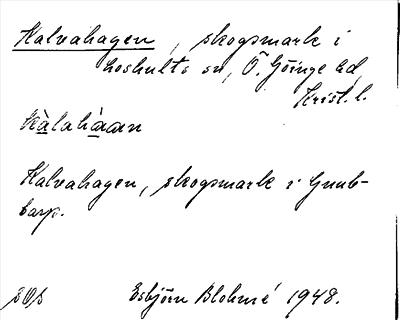 Kalvahagen, skogsmark i
Loshults sn, Ö. Göinge hd,
Krist. l.
Kàlahàan
Kalvahagen, skogsmark i Gnub-
barp.
sOs Esbjörn Blohmé 1948.